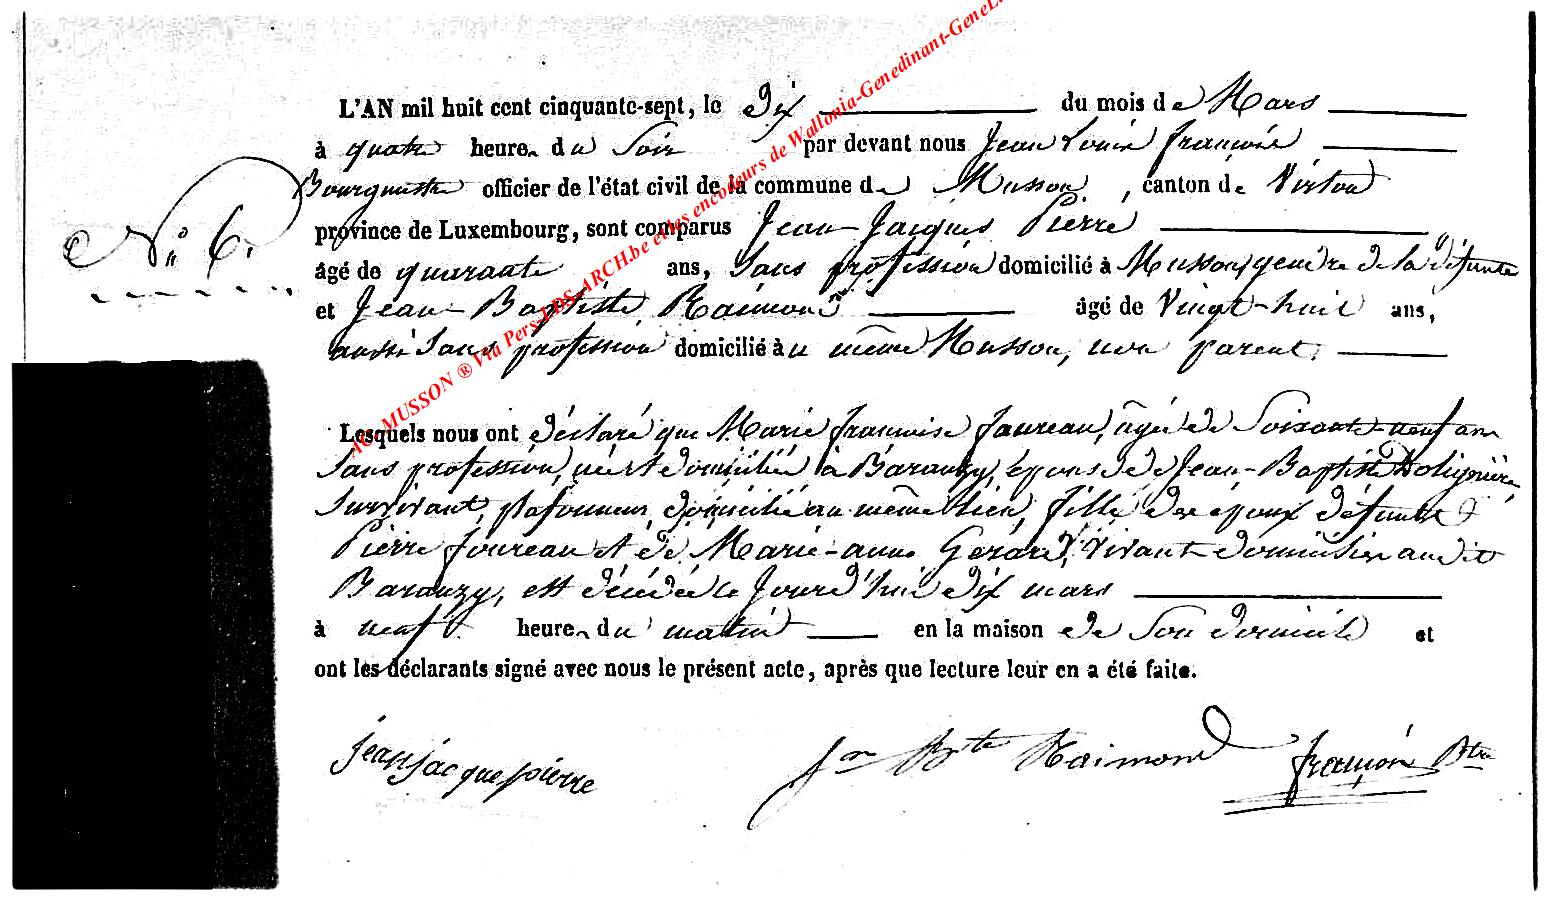 L'AN mil huit cent cinquante-sept, le dix du mois de Mars
à quatre heures du Soir par devant nous Jean Louis françois
Bourguestre officier de l'état civil de la commune de Musson, canton de Virton
N° 6.
province de Luxembourg, sont comparus Jean Jacques Pierre
âgé de quarante ans, Sans profession domicilié à Musson, gendre de la défunte
et Jean-Baptiste Raimond âgé de vingt-huit ans,
aussi Sans profession domicilié au même Musson, non parent,
Lesquels nous ont déclaré que Marie françoise foureau, agée de Soixante-neuf ans
Sans profession, née et domiciliée à Baranzy, épouse de Jean-Baptiste
Survivant, plafonneur, domicilié au même lieu, fille des époux défunts
Pierre foureau et de Marie-anne Gerard, vivant domiciliés audit
Baranzy, est décédée le Jourd'hui dix mars
à neuf heures du matin en la maison de Son domicile et
ont les déclarants signé avec nous le présent acte, après que lecture leur en a été faite.
jean jacque pierre Jn Bte Raimond françois
AC. MUSSON ® Via Pers-LDS-ARCH.be et les encodeurs de Wallonia-Genedinant-GeneL